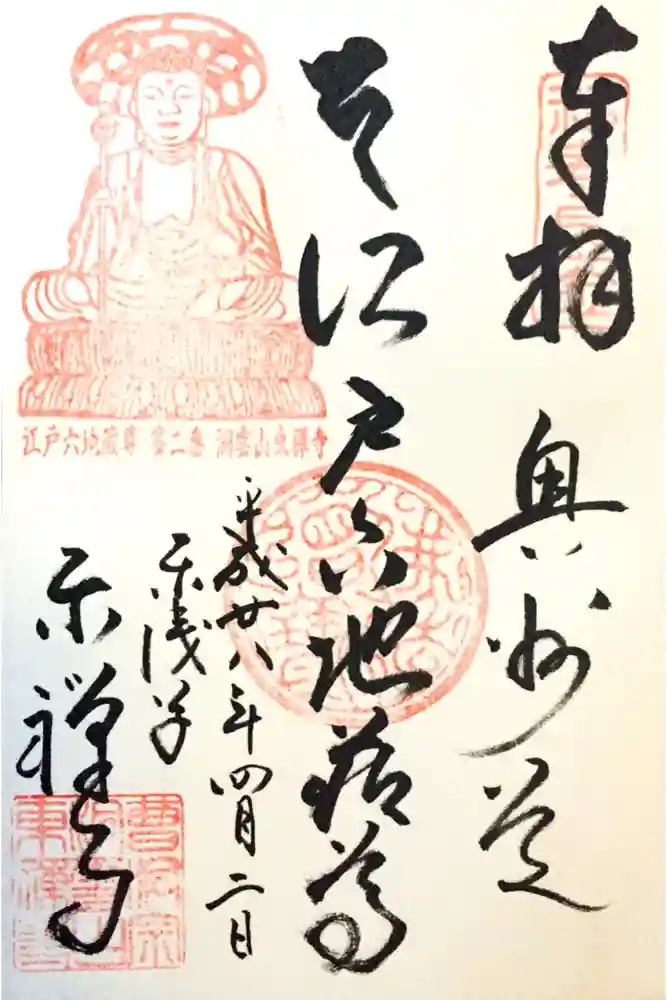 奉拝 奥州道
大江戸六地蔵尊
平成廿八年四月二日
東浅草
東禪寺
江戸六地蔵尊 第二番 洞雲山東禅寺
曹洞宗
洞雲山
東禅寺